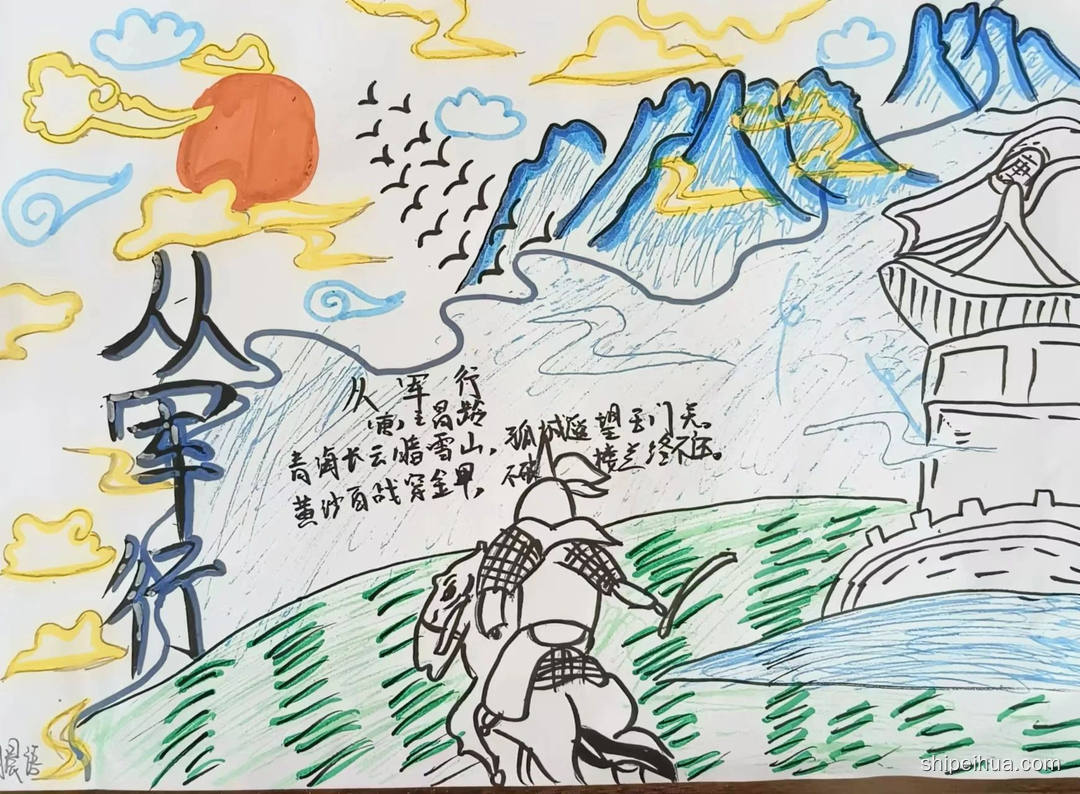 从军行
从军行
(唐)王昌龄
青海长云暗雪山,孤城遥望玉门关。
黄沙百战穿金甲,不破楼兰终不还。
晨语
shipeihua.com